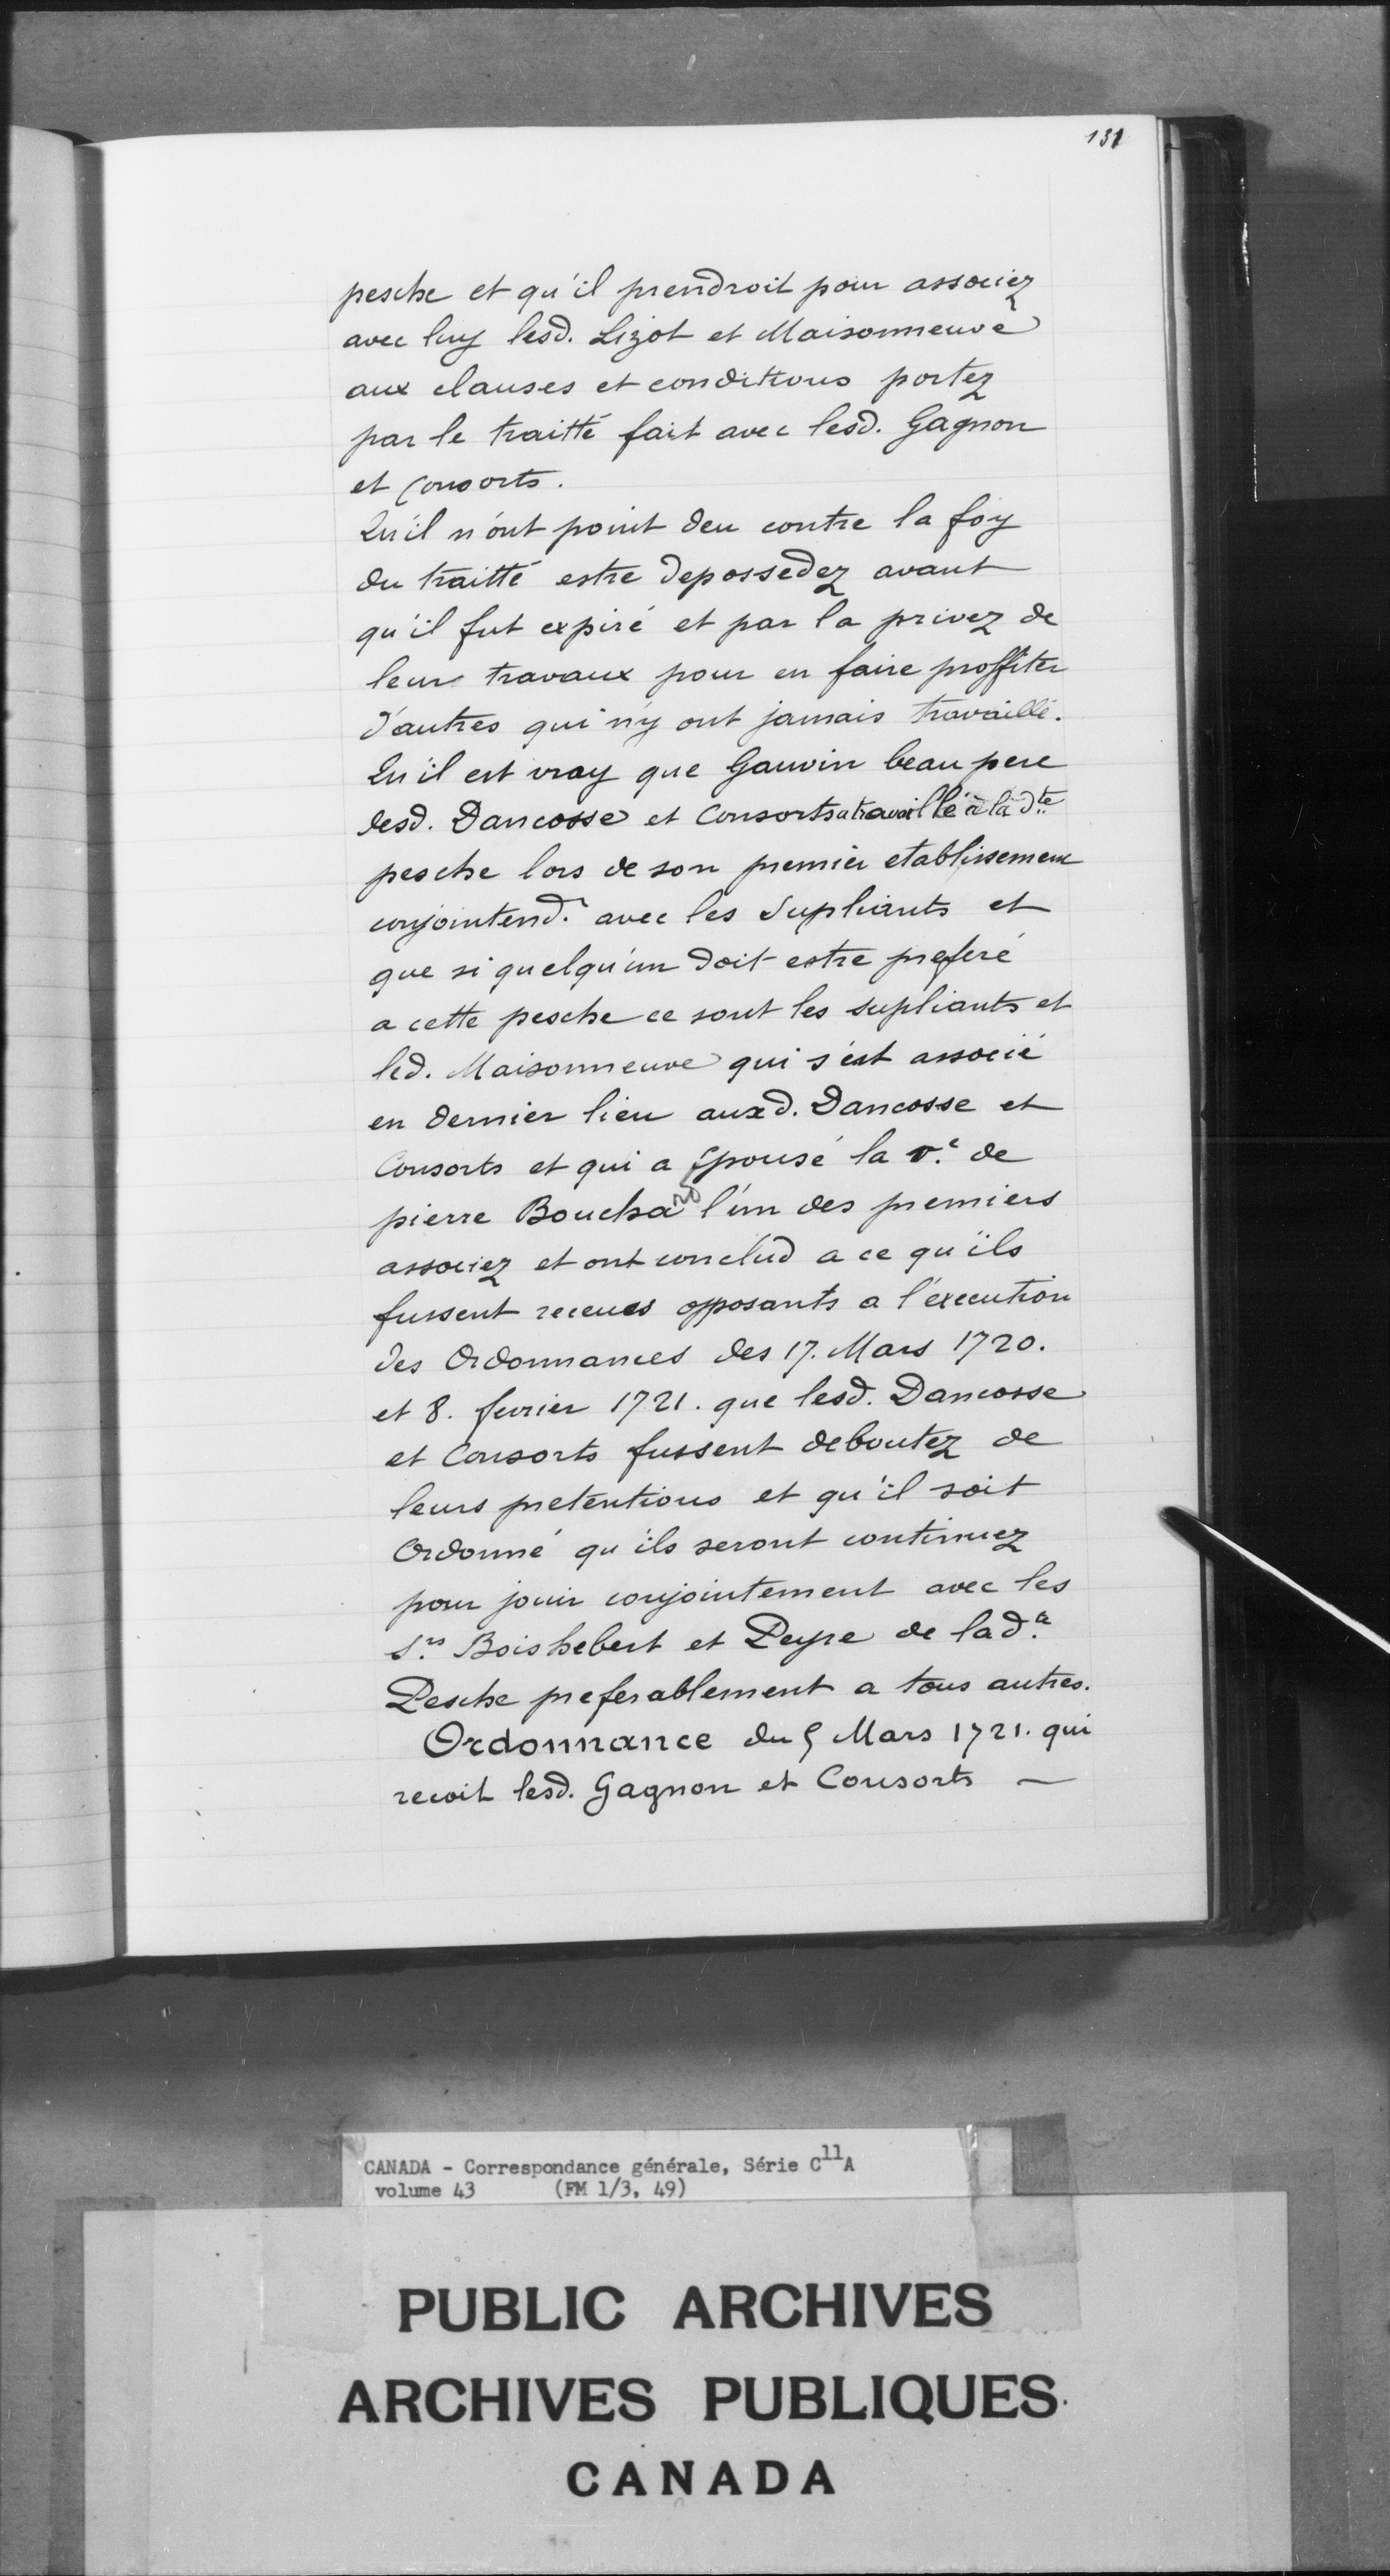 131
pesche et qu'il prendroit pour associez
avec luy lesd. Lizot et Maisonneuve
aux clauses et conditions portez
par le traitté fait avec lesd. Gagnon
et Consorts.
Qu'il n'ont point deu contre la foy
du traitté estre depossedez avant
qu'il fut expiré et par la privez de
leurs travaux pour en faire proffiter
d'autres qui n'y ont jamais travaillé.
Qu'il est vray que Gauvin beau pere
desd. Dancosse et Consorts a travaillé à la dte
pesche lors de son premier etablissement
conjointend.t avec les Supliants et
que si quelqu'un doit estre preferé
a cette pesche ce sont les supliants et
led. Maisonneuve qui s'est associé
en dernier lieu auxd. Dancosse et
Consorts et qui a Epousé la v.e de
pierre Bouchard l'un des premiers
associez et ont conclud a ce qu'ils
fussent receues opposants a l'execution
des Ordonnances des 17. Mars 1720.
et 8. fevrier 1721. que lesd. Dancosse
et Consorts fussent deboutez de
leurs pretentions et qu'il soit
Ordonné qu'ils seront continuez
pour jouir conjointement avec les
S.rs Boishebert et Peyre de lad.e
Pesche preferablement a tous autres.
Ordonnance du 5 Mars 1721. qui
recoit lesd. Gagnon et Consorts —
CANADA - Correspondance générale, Série C11A
volume 43 (FM 1/3, 49)
PUBLIC ARCHIVES
ARCHIVES PUBLIQUES
CANADA